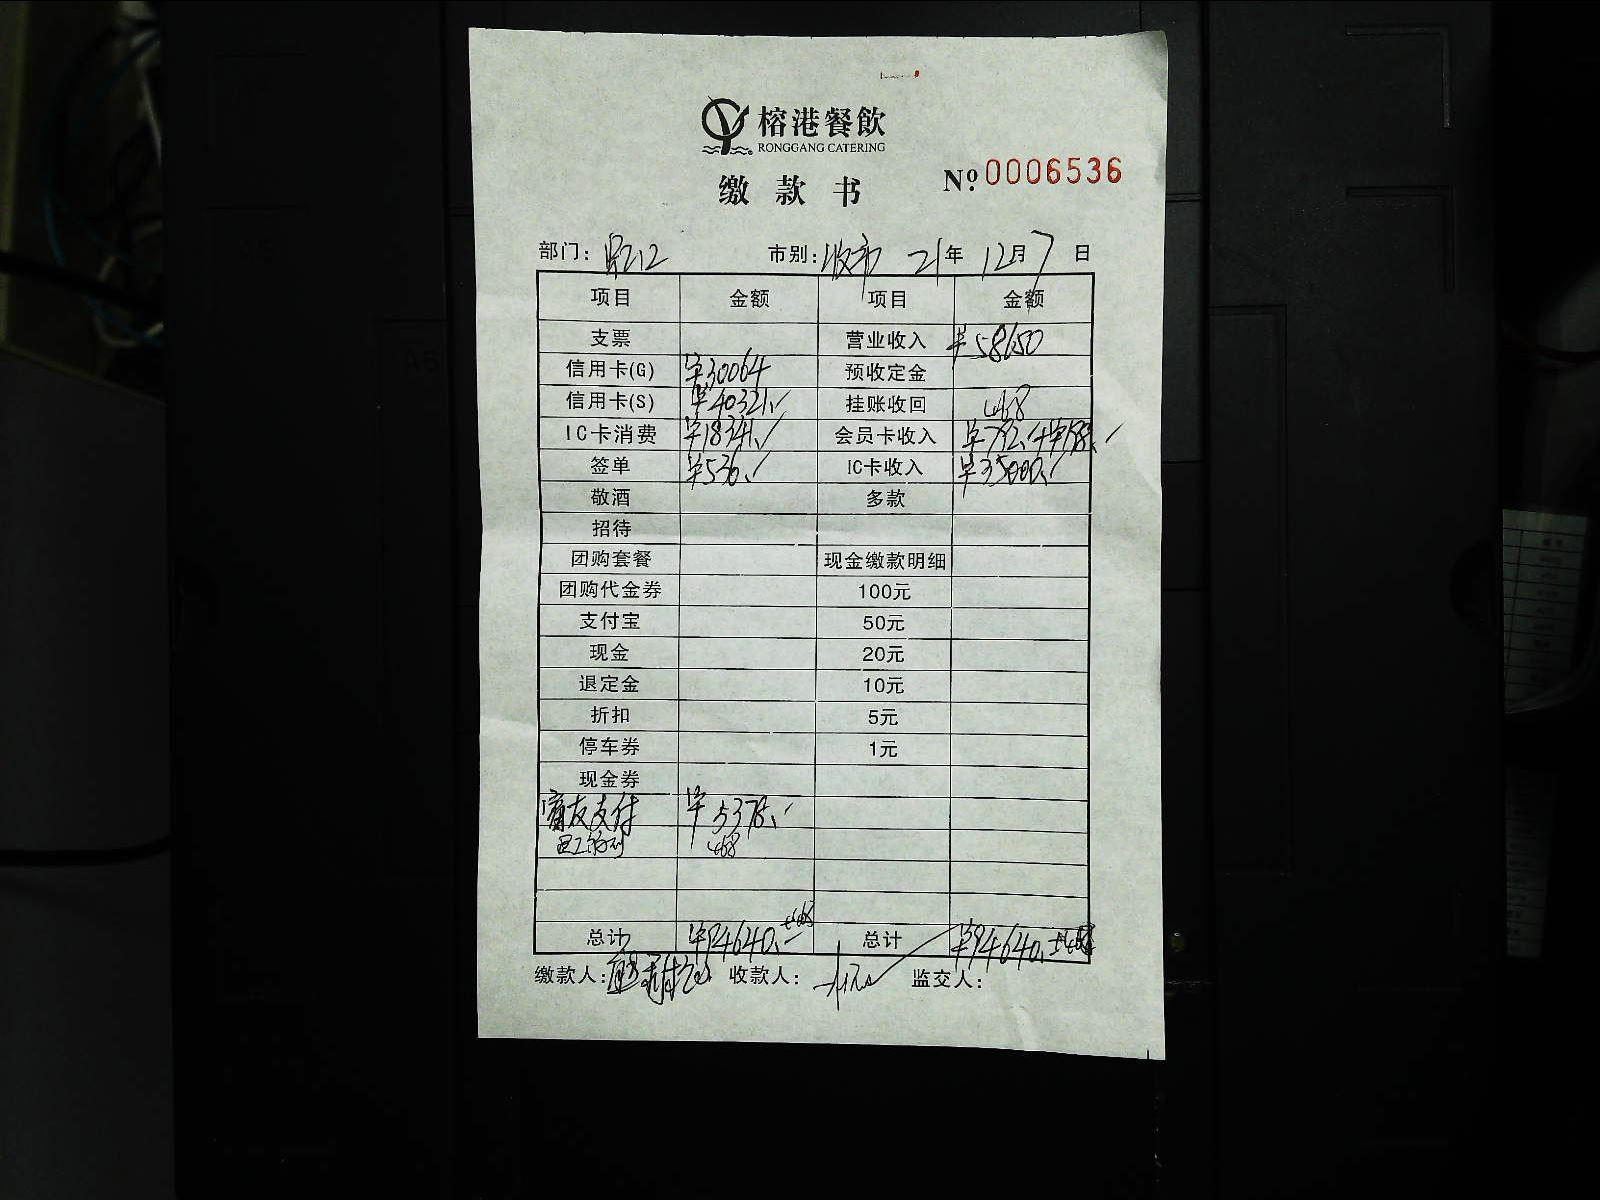 榕港餐飲
RONGGANG CATERING
缴款书 Nº 0006536
部门: 市别:收市 21年 12月 7日
项目 金额 项目 金额
支票 营业收入 ¥58650
信用卡(G) ¥30064 预收定金
信用卡(S) ¥40321. 挂账收回 468
IC卡消费 ¥18341. 会员卡收入 ¥792.
签单 ¥536. IC卡收入 ¥35000.
敬酒 多款
招待
团购套餐 现金缴款明细
团购代金券 100元
支付宝 50元
现金 20元
退定金 10元
折扣 5元
停车券 1元
现金券
支付 ¥5378.
468
总计 ¥94640. +468 总计 ¥94640. +468
缴款人: 收款人: 监交人:
A5